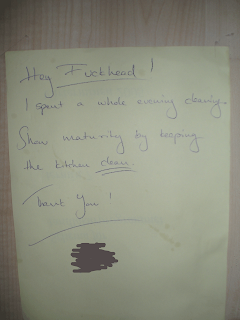 Hey Fuckhead!
I spent a whole evening cleaning.
Show maturity by keeping
the kitchen clean.
Thank You!